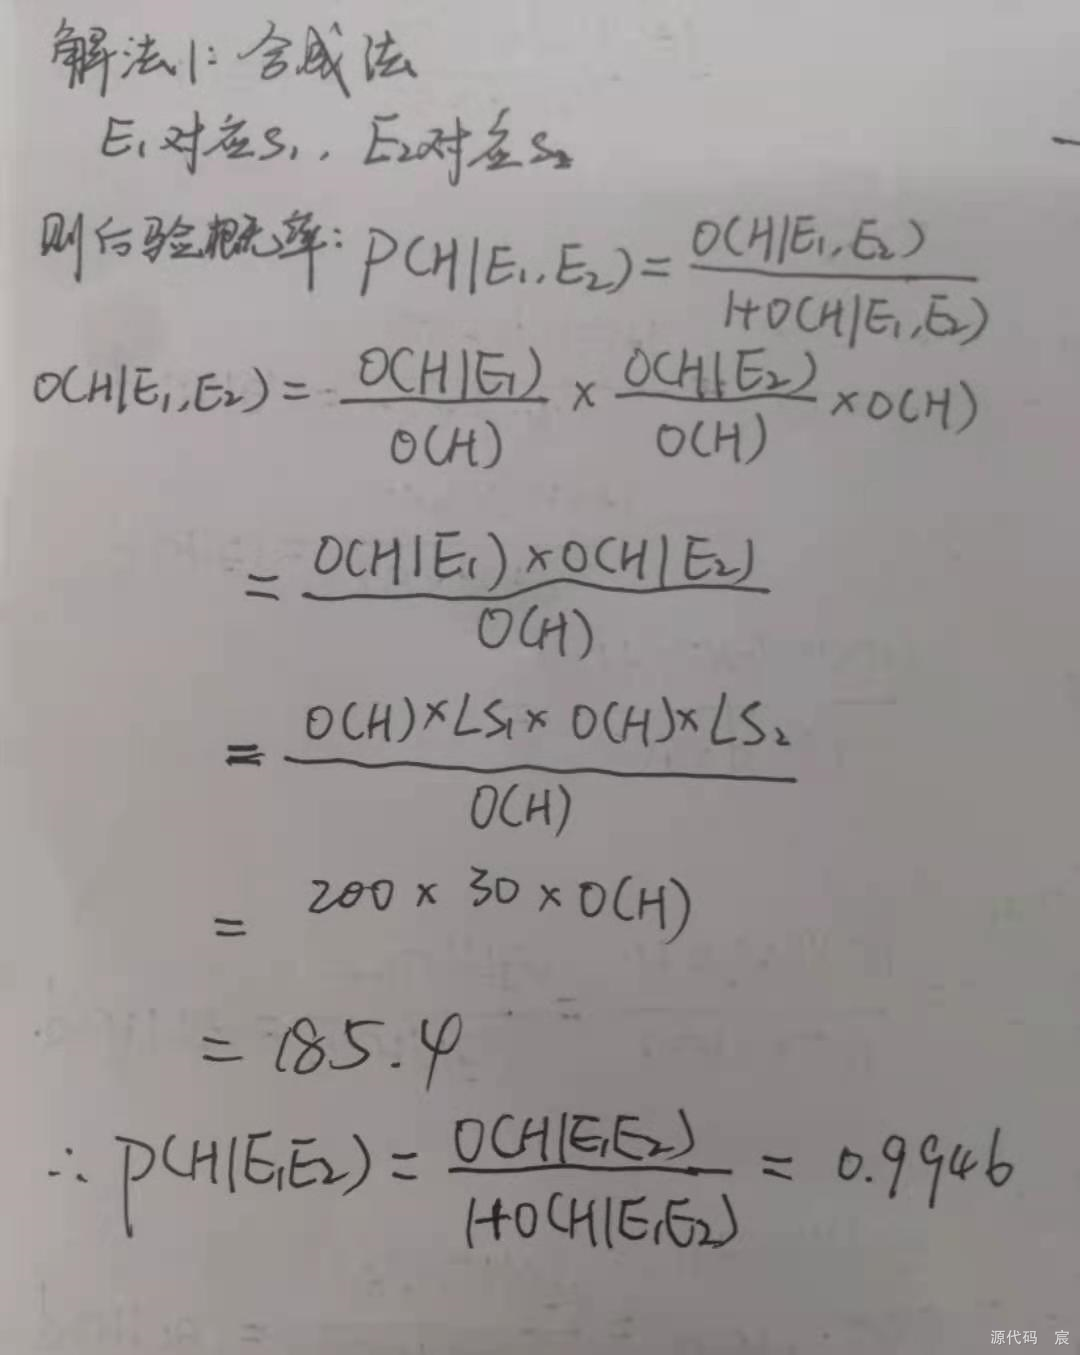 解法1: 合成法
E₁对应S₁, E₂对应S₂
则后验概率: P(H|E₁,E₂) = O(H|E₁,E₂) / 1+O(H|E₁,E₂)
O(H|E₁,E₂) = O(H|E₁) / O(H) × O(H|E₂) / O(H) × O(H)
= O(H|E₁) × O(H|E₂) / O(H)
= O(H)×LS₁× O(H)×LS₂ / O(H)
= 200 × 30 × O(H)
= 185.4
∴ P(H|E₁E₂) = O(H|E₁E₂) / 1+O(H|E₁E₂) = 0.9946
源代码 宸